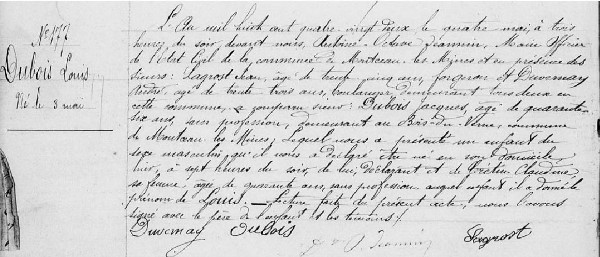 N° 177
Dubois Louis
Né le 3 mai
L'An mil huit cent quatre-vingt deux le quatre mai, à trois
heures du soir, devant nous, Antoine Octave Jeannin, Maire Officier
de l'Etat Civil de la commune de Montceau les Mines et en présence des
sieurs: Lagrost Jean, âgé de cinq ans, forgeron et Duvernay
âgé de trente trois ans, boulanger demeurant tous deux en
cette commune, a comparu sieur: Dubois Jacques, âgé de quarante
six ans, sans profession, demeurant au Bois du Verne, commune
de Montceau les Mines, Lequel nous a présenté un enfant du
sexe masculin, qu'il nous a déclaré être né en son domicile
hier, à sept heures du soir, de lui, déclarant et de Claudine
sa femme, âgée de quarante ans, sans profession auquel enfant il a donné le
prénom de Louis. — Lecture faite du présent acte, nous l'avons
signé avec le père de l'enfant et les témoins.
Duvernay Dubois
O. Jeannin
Lagrost